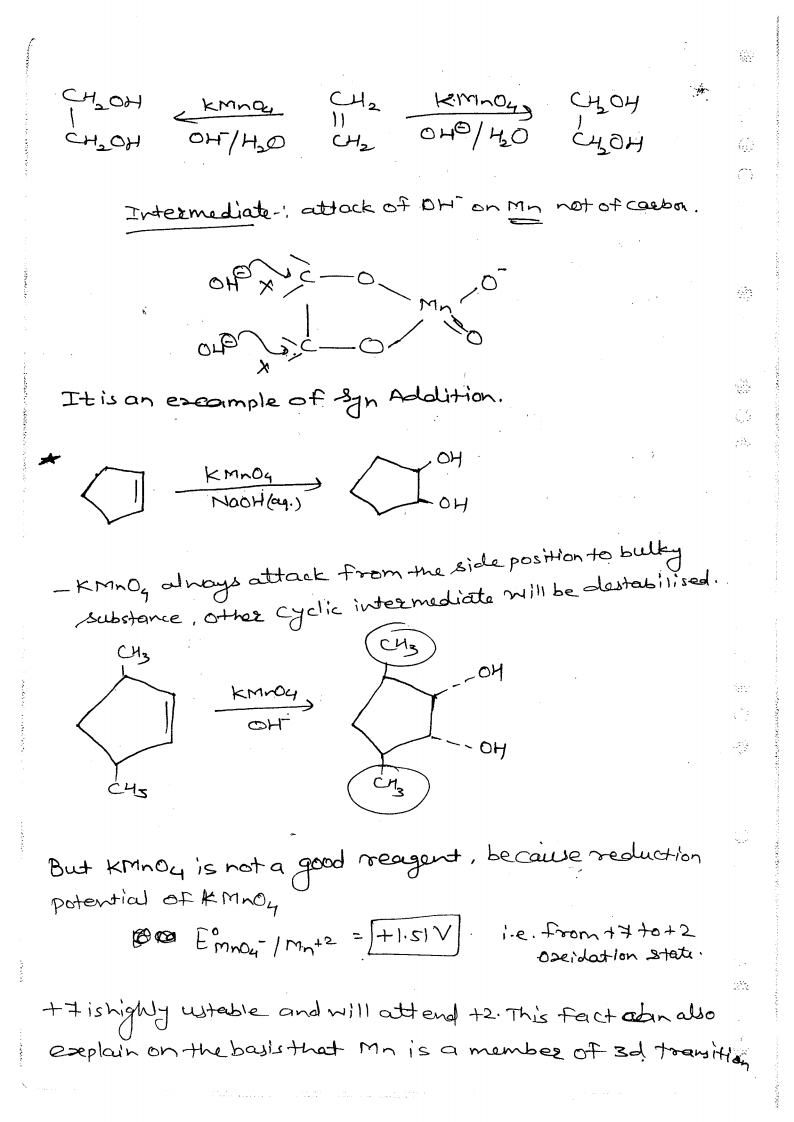 CH2OH KMnO4 CH2 KMnO4 CH2OH
CH2OH OH-/H2O CH2 OH⊖/H2O CH2OH
Intermediate-: attack of OH- on Mn not of carbon.
OH⊖ C O O-
x Mn
OH⊖ C O O
x
It is an example of Syn Addition.
KMnO4 OH
NaOH(aq.) OH
- KMnO4 always attack from the side position to bulky
substance, other cyclic intermediate will be destabilised.
CH3 CH3
KMnO4 OH
OH- OH
CH3 CH3
But KMnO4 is not a good reagent, because reduction
potential of KMnO4
E°MnO4-/Mn+2 = +1.51V i.e. from +7 to +2
oxidation state.
+7 is highly ustable and will attend +2. This fact can also
explain on the basis that Mn is a member of 3d transition